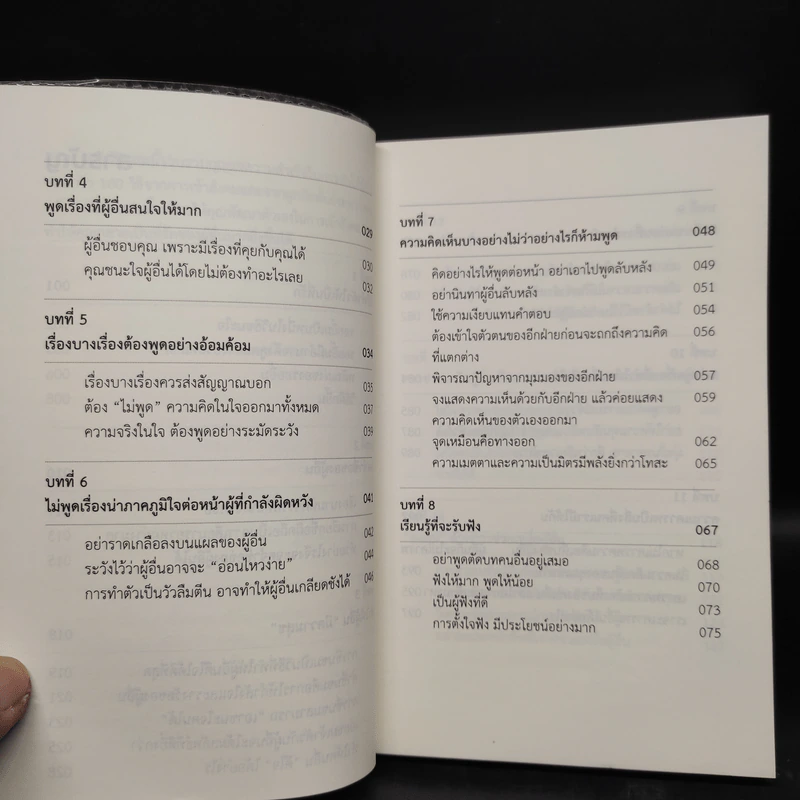 บทที่ 4
พูดเรื่องที่ผู้อื่นสนใจให้มาก 029
ผู้อื่นชอบคุณ เพราะมีเรื่องที่คุยกับคุณได้ 030
คุณชนะใจผู้อื่นได้โดยไม่ต้องทำอะไรเลย 032
บทที่ 5
เรื่องบางเรื่องต้องพูดอย่างอ้อมค้อม 034
เรื่องบางเรื่องควรส่งสัญญาณบอก 035
ต้อง “ไม่พูด” ความคิดในใจออกมาทั้งหมด 037
ความจริงในใจ ต้องพูดอย่างระมัดระวัง 039
บทที่ 6
ไม่พูดเรื่องน่าภาคภูมิใจต่อหน้าผู้ที่กำลังผิดหวัง 041
อย่าราดเกลือลงบนแผลของผู้อื่น 042
ระวังไว้ว่าผู้อื่นอาจจะ “อ่อนไหวง่าย” 044
การทำตัวเป็นวัวลืมตีน อาจทำให้ผู้อื่นเกลียดชังได้ 046
บทที่ 7
ความคิดเห็นบางอย่างไม่ว่าอย่างไรก็ห้ามพูด 048
คิดอย่างไรให้พูดต่อหน้า อย่าเอาไปพูดลับหลัง 049
อย่านินทาผู้อื่นลับหลัง 051
ใช้ความเงียบแทนคำตอบ 054
ต้องเข้าใจตัวตนของอีกฝ่ายก่อนจะถกถึงความคิด 056
ที่แตกต่าง
พิจารณาปัญหาจากมุมมองของอีกฝ่าย 057
จงแสดงความเห็นด้วยกับอีกฝ่าย แล้วค่อยแสดง 059
ความคิดเห็นของตัวเองออกมา
จุดเหมือนคือทางออก 062
ความเมตตาและความเป็นมิตรมีพลังยิ่งกว่าโทสะ 065
บทที่ 8
เรียนรู้ที่จะรับฟัง 067
อย่าพูดตัดบทคนอื่นอยู่เสมอ 068
ฟังให้มาก พูดให้น้อย 070
เป็นผู้ฟังที่ดี 073
การตั้งใจฟัง มีประโยชน์อย่างมาก 075